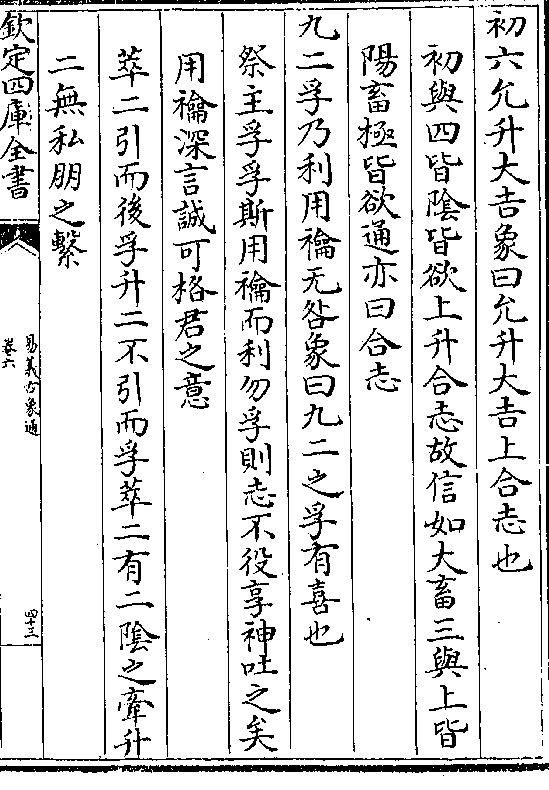 初六允升大吉象曰允升大吉上合志也
初與四皆陰皆欲上升合志故信如大畜三與上皆
陽畜極皆欲通亦曰合志
九二孚乃利用禴无咎象曰九二之孚有喜也
祭主孚孚斯用禴而利勿孚則志不役享神吐之矣
用禴深言誠可格君之意
萃二引而後孚升二不引而孚萃二有二陰之牽升
二無私朋之繫
欽定四庫全書
易義古象通
卷六
四十三